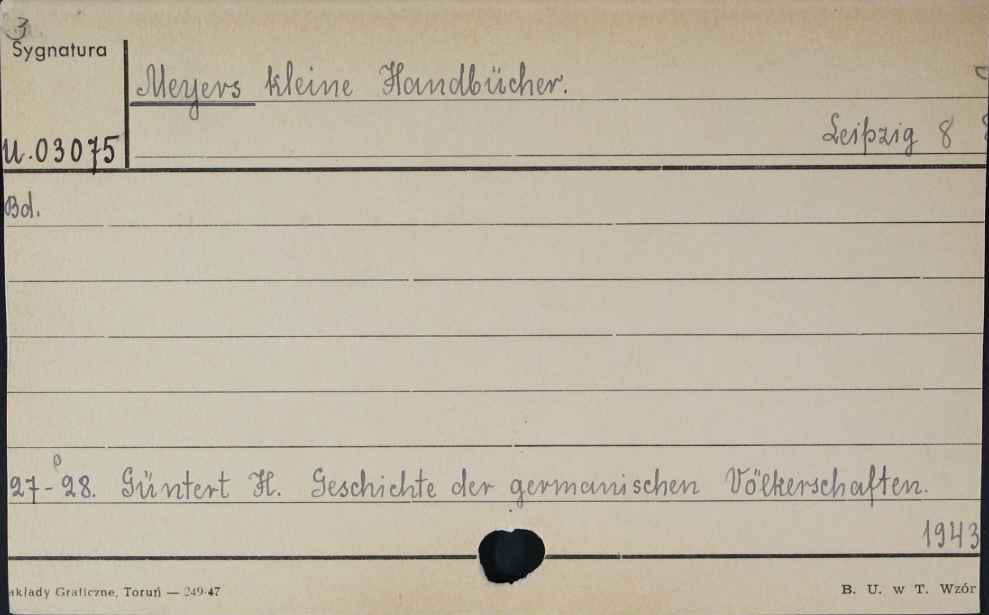 3
Sygnatura
Meyers kleine Handbücher.
U.03075
Leipzig 8
Bd.
27-28. Güntert H. Geschichte der germanischen Völkerschaften.
1943
akłady Graficzne, Toruń — 249-47
B. U. w T. Wzór